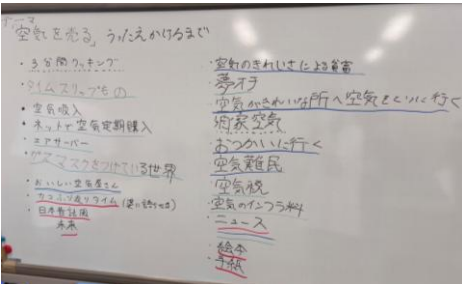 テーマ
「空気を売る」うったえかけるまで
・3分間クッキング
タイムスリップもの
・空気吸入
・ネットで空気定期購入
・エアサーバー
ガスマスクをつけている世界
・おいしい空気屋さん
・日本昔話風
未来
・空気のきれいさによる貧富
夢オチ
・空気がきれいな所へ空気をくいに行く
・おつかいに行く
空気難民
空気税
空気のインフラ料
・ニュース
・絵本
・手紙